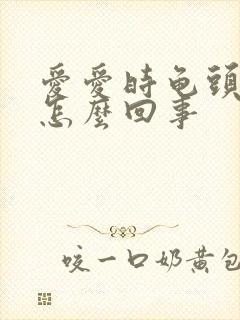 愛愛時龟頭
怎麼回事
咬一口奶黄包